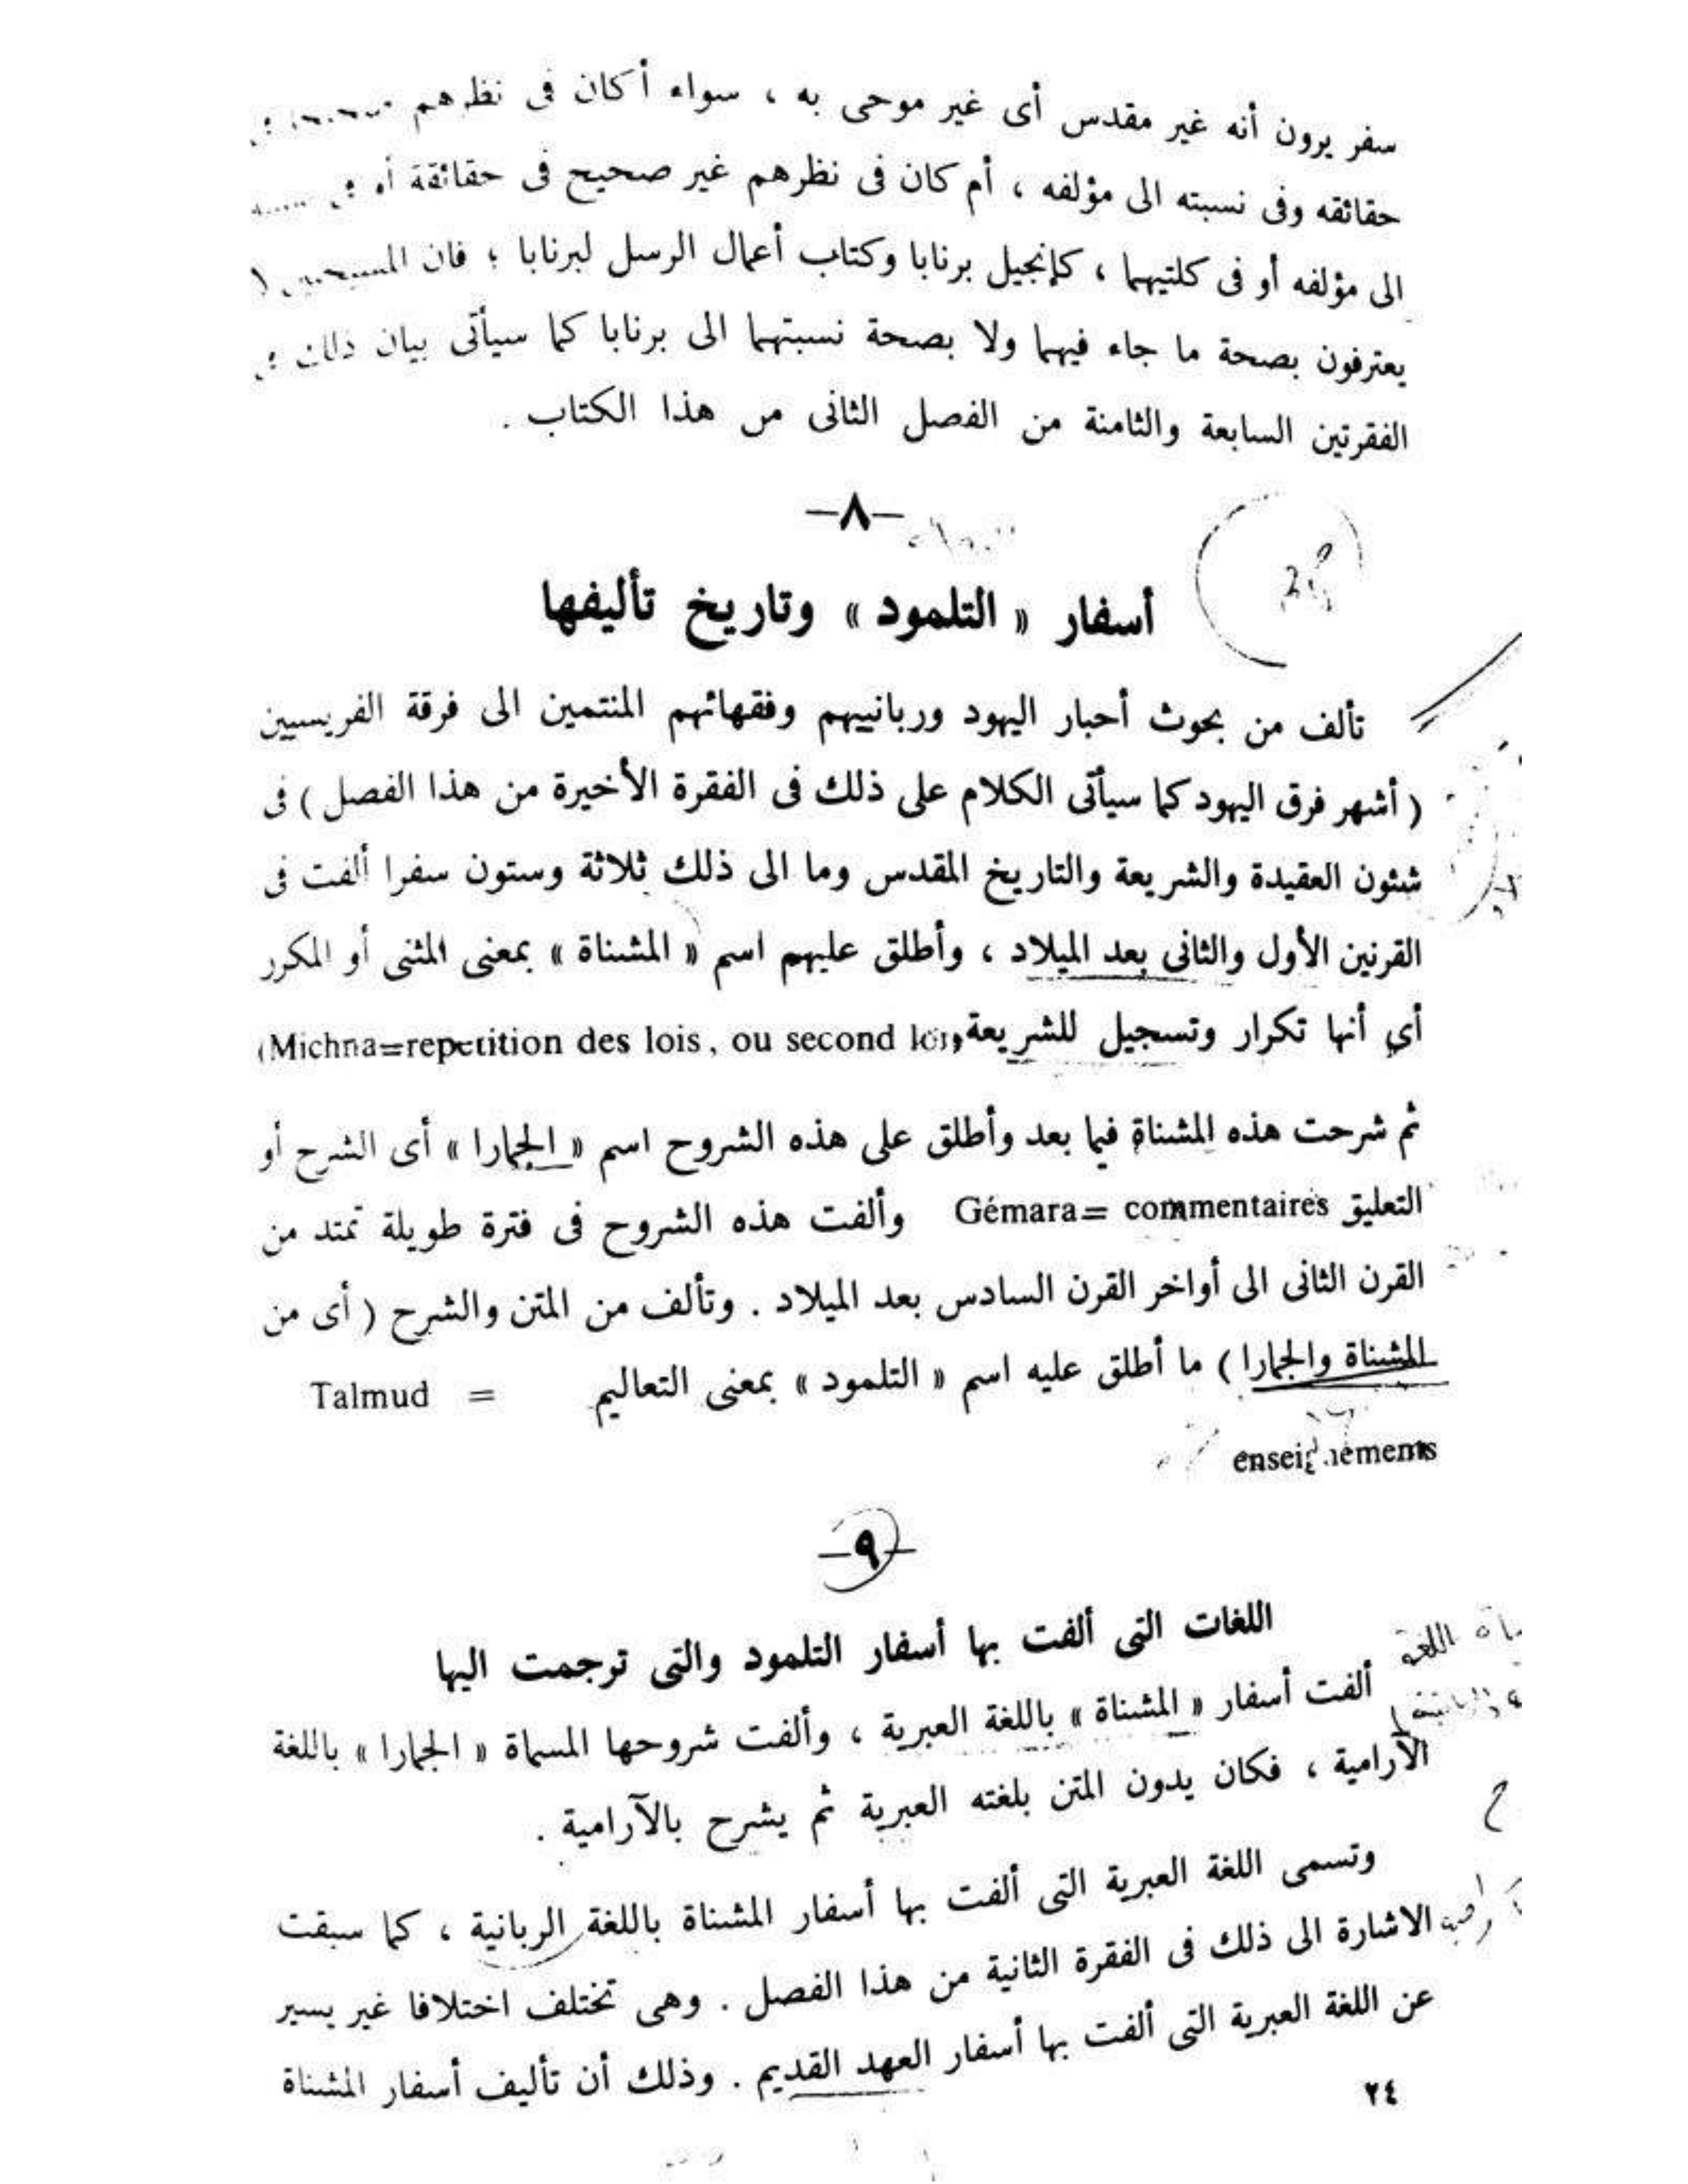 سفر يرون أنه غير مقدس أى غير موحى به ، سواء أكان فى نظرهم
حقائقه وفى نسبته الى مؤلفه ، أم كان فى نظرهم غير صحيح فى حقائقة
الى مؤلفه أو فى كلتيهما ، كإنجيل برنابا وكتاب أعمال الرسل لبرنابا ؛ فان المسيحيين لا
يعترفون بصحة ما جاء فيهما ولا بصحة نسبتهما الى برنابا كما سيأتى بيان ذلك فى
الفقرتين السابعة والثامنة من الفصل الثانى من هذا الكتاب .
—٨—
أسفار « التلمود » وتاريخ تأليفها
تألف من بحوث أحبار اليهود وربانييهم وفقهائهم المنتمين الى فرقة الفريسيين
( أشهر فرق اليهود كما سيأتى الكلام على ذلك فى الفقرة الأخيرة من هذا الفصل ) فى
شئون العقيدة والشريعة والتاريخ المقدس وما الى ذلك ثلاثة وستون سفرا ألفت فى
القرنين الأول والثانى بعد الميلاد ، وأطلق عليهم اسم « المشناة » بمعنى المثنى أو المكرر
أي أنها تكرار وتسجيل للشريعة (Michna=repetition des lois, ou second loi)
ثم شرحت هذه المشناة فيما بعد وأطلق على هذه الشروح اسم « الجمارا » أى الشرح أو
التعليق Gémara= commentaires وألفت هذه الشروح فى فترة طويلة تمتد من
القرن الثانى الى أواخر القرن السادس بعد الميلاد . وتألف من المتن والشرح ( أى من
المشناة والجمارا ) ما أطلق عليه اسم « التلمود » بمعنى التعاليم Talmud =
enseignements
—٩—
اللغات التى ألفت بها أسفار التلمود والتى ترجمت اليها
ألفت أسفار « المشناة » باللغة العبرية ، وألفت شروحها المسماة « الجمارا » باللغة
الآرامية ، فكان يدون المتن بلغته العبرية ثم يشرح بالآرامية .
وتسمى اللغة العبرية التى ألفت بها أسفار المشناة باللغة الربانية ، كما سبقت
الاشارة الى ذلك فى الفقرة الثانية من هذا الفصل . وهى تختلف اختلافا غير يسير
عن اللغة العبرية التى ألفت بها أسفار العهد القديم . وذلك أن تأليف أسفار المشناة
٢٤